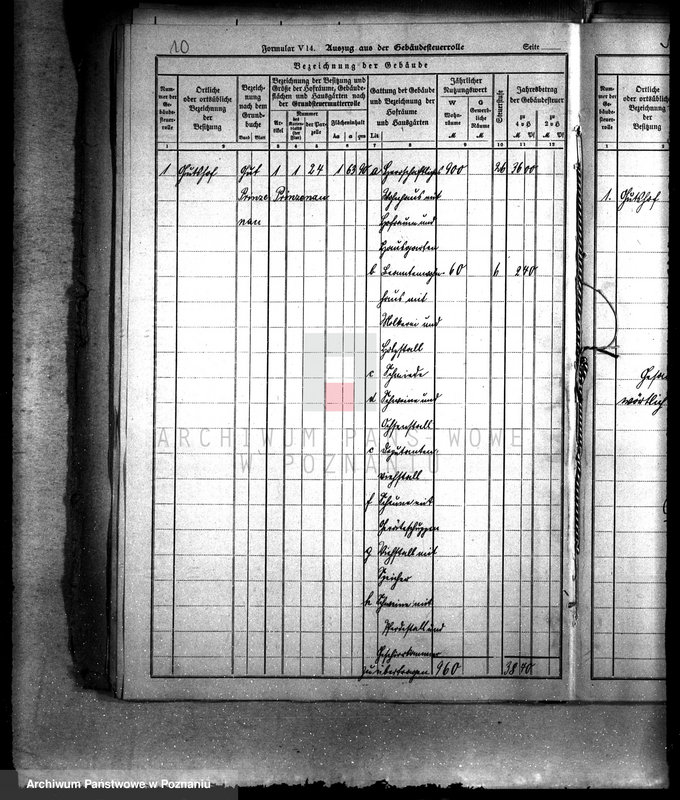 10
Formular V 14. Auszug aus der Gebäudesteuerrolle Seite
Bezeichnung der Gebäude
Nummer der Gebäudesteuerrolle
Örtliche oder ortsübliche Bezeichnung der Besitzung
Bezeichnung nach dem Grundbuche
Band Blatt
Bezeichnung der Besitzung und Größe der Hofräume, Gebäudeflächen und Hausgärten nach der Grundsteuermutterrolle
Artikel
Nummer
der Parzelle
Flächeninhalt
ha a qm
Gattung der Gebäude und Bezeichnung der Hofräume und Hausgärten
Lit
Jährlicher Nutzungswert
W Wohnräume M
G Gewerbliche Räume M
Steuerstufe
Jahresbetrag der Gebäudesteuer
zu 4 v H M Pf
zu 2 v H M Pf
1 2 3 4 5 6 7 8 9 10 11 12
1 Gutshof Gut 1 1 24 1 63 90 a Herrschaftliches 900 26 36 00
Prinze Prinzenau Wohnhaus mit
nau Hofraum und
Hausgarten
b Beamtenwohn- 60 6 2 40
haus mit
Molkerei und
Holzstall
c Schmiede
d Schweine und
Ochsenstall
e Deputanten
viehstall
f Scheune mit
Geräteschuppen
g Viehstall mit
Speicher
h Scheune mit
Pferdestall und
Geschirrkammer
zu übertragen 960 38 40
Nummer der Gebäudesteuerrolle
Örtliche oder ortsübliche Bezeichnung der Besitzung
1 2
1. Gutshof
wörtlich
ARCHIWUM PAŃSTWOWE
W POZNANIU
Archiwum Państwowe w Poznaniu